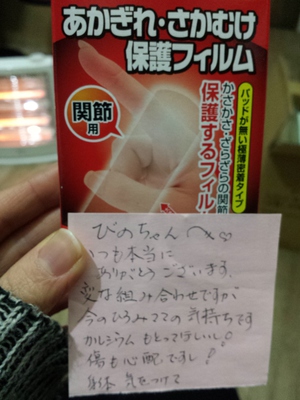 あかぎれ・さかむけ
保護フィルム
関節
用
パッドが無い極薄密着タイプ
かさかさ・ざらざらの関節
保護するフィル
びのちゃんへ♡
いつも本当に
ありがとうございます。
変な組み合わせですが
今のひろみママの気持ちです
カルシウムもとってほしいし
傷も心配ですし!
身体 気をつけて